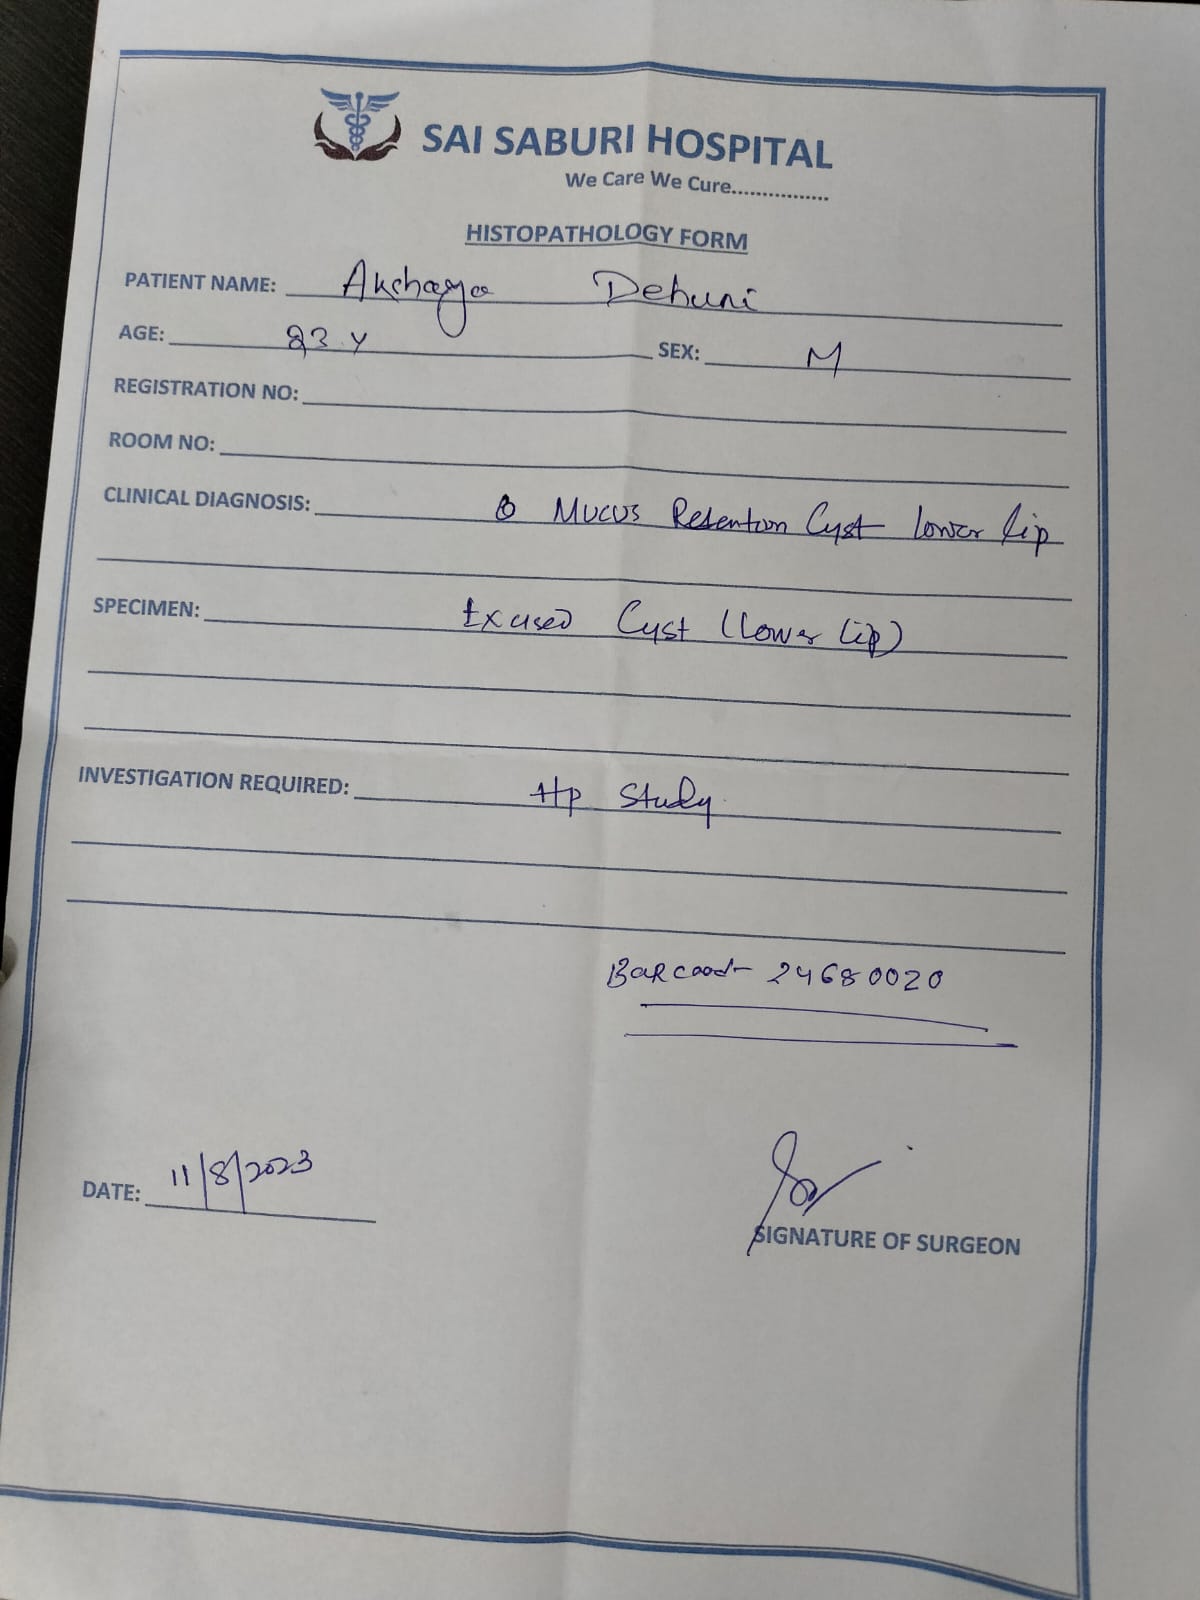 SAI SABURI HOSPITAL
We Care We Cure................
HISTOPATHOLOGY FORM
PATIENT NAME: Akshaya Dehuri
AGE: 23 y SEX: M
REGISTRATION NO:
ROOM NO:
CLINICAL DIAGNOSIS: Mucus Retention Cyst lower lip
SPECIMEN: Excised Cyst (lower lip)
INVESTIGATION REQUIRED: Hp Study
Barcood- 24680020
DATE: 11/8/2023
SIGNATURE OF SURGEON